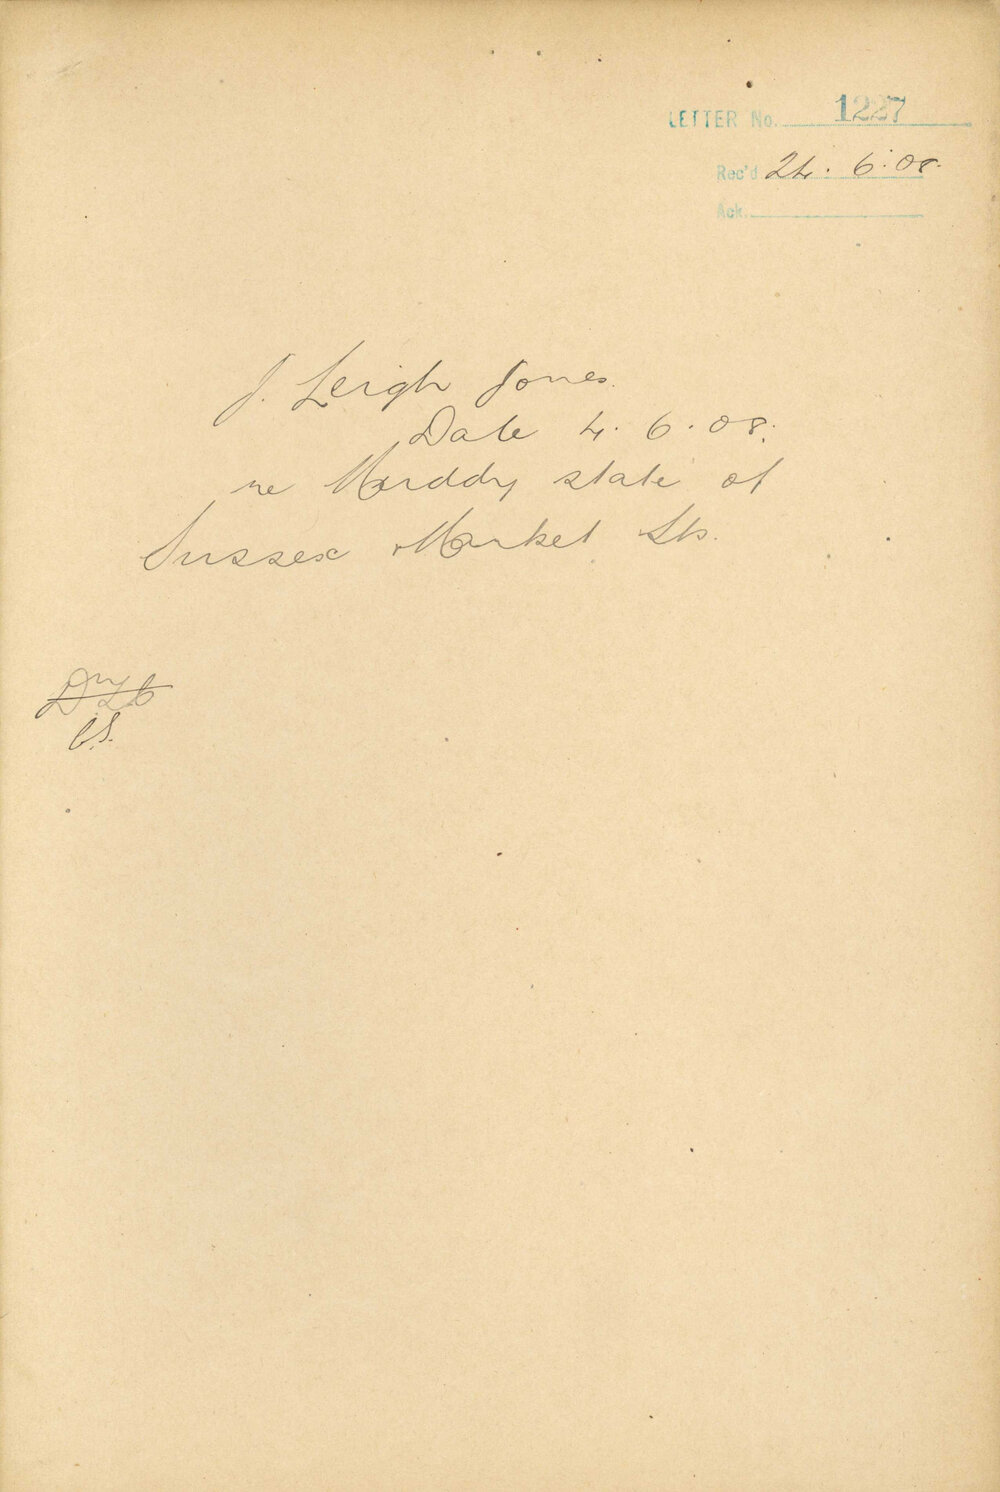 LETTER No. 1227
Rec'd 24.6.08.
Ack.
J. Leigh Jones.
Date 4.6.08.
re Muddy state of
Sussex Market Sts.
C.S.